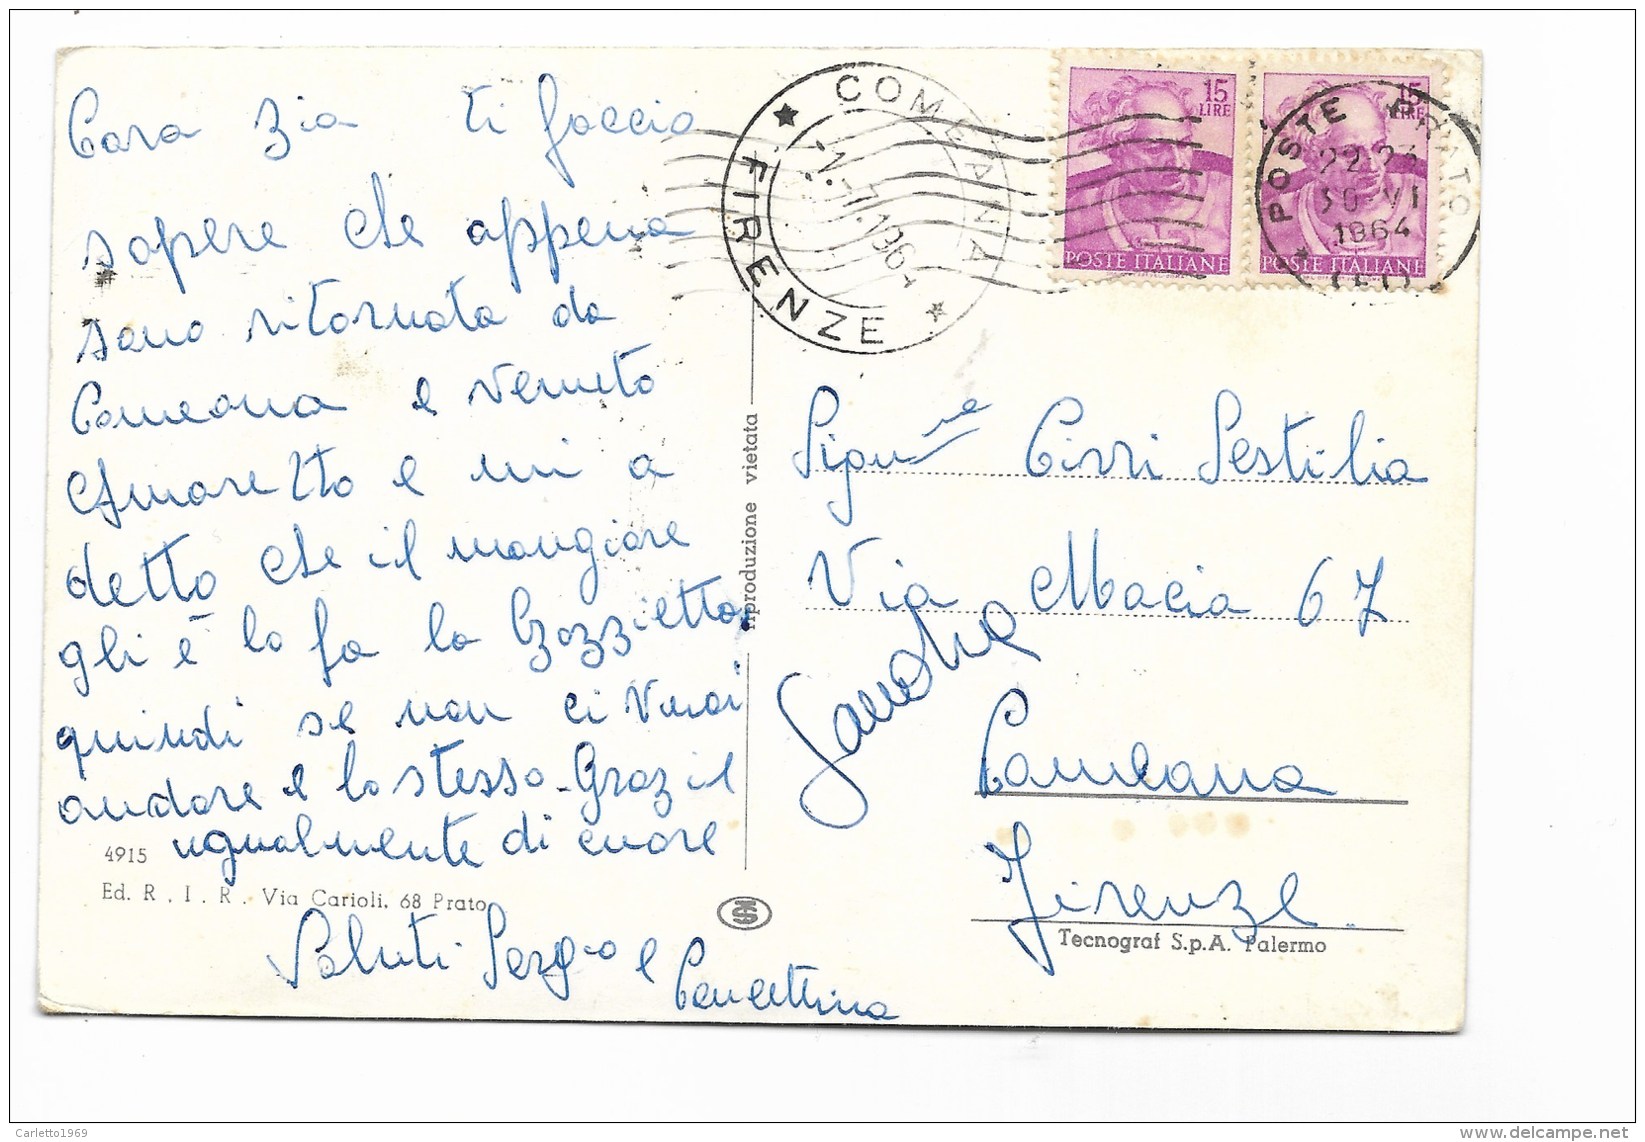 Cara Zia ti faccio
sapere che appena
sono ritornata da
Comeana e venuto
Amaretto e mi a
detto che il mangiare
gli è lo fa la Gozzetto
quindi se non ci vuoi
andare e lo stesso - Grazie
ugualmente di cuore
Saluti Sergio e
Concettina
Sandra
4915
Ed. R. I. R. Via Carioli, 68 Prato
riproduzione vietata
COMEANA
FIRENZE
15
LIRE
POSTE ITALIANE
15
LIRE
POSTE ITALIANE
POSTE PRATO
30 VI
1964
Sign.na Cirri Sestilia
Via Macia 67
Comeana
Firenze
Tecnograf S.p.A. Palermo
Carletto1969
delcampe.net